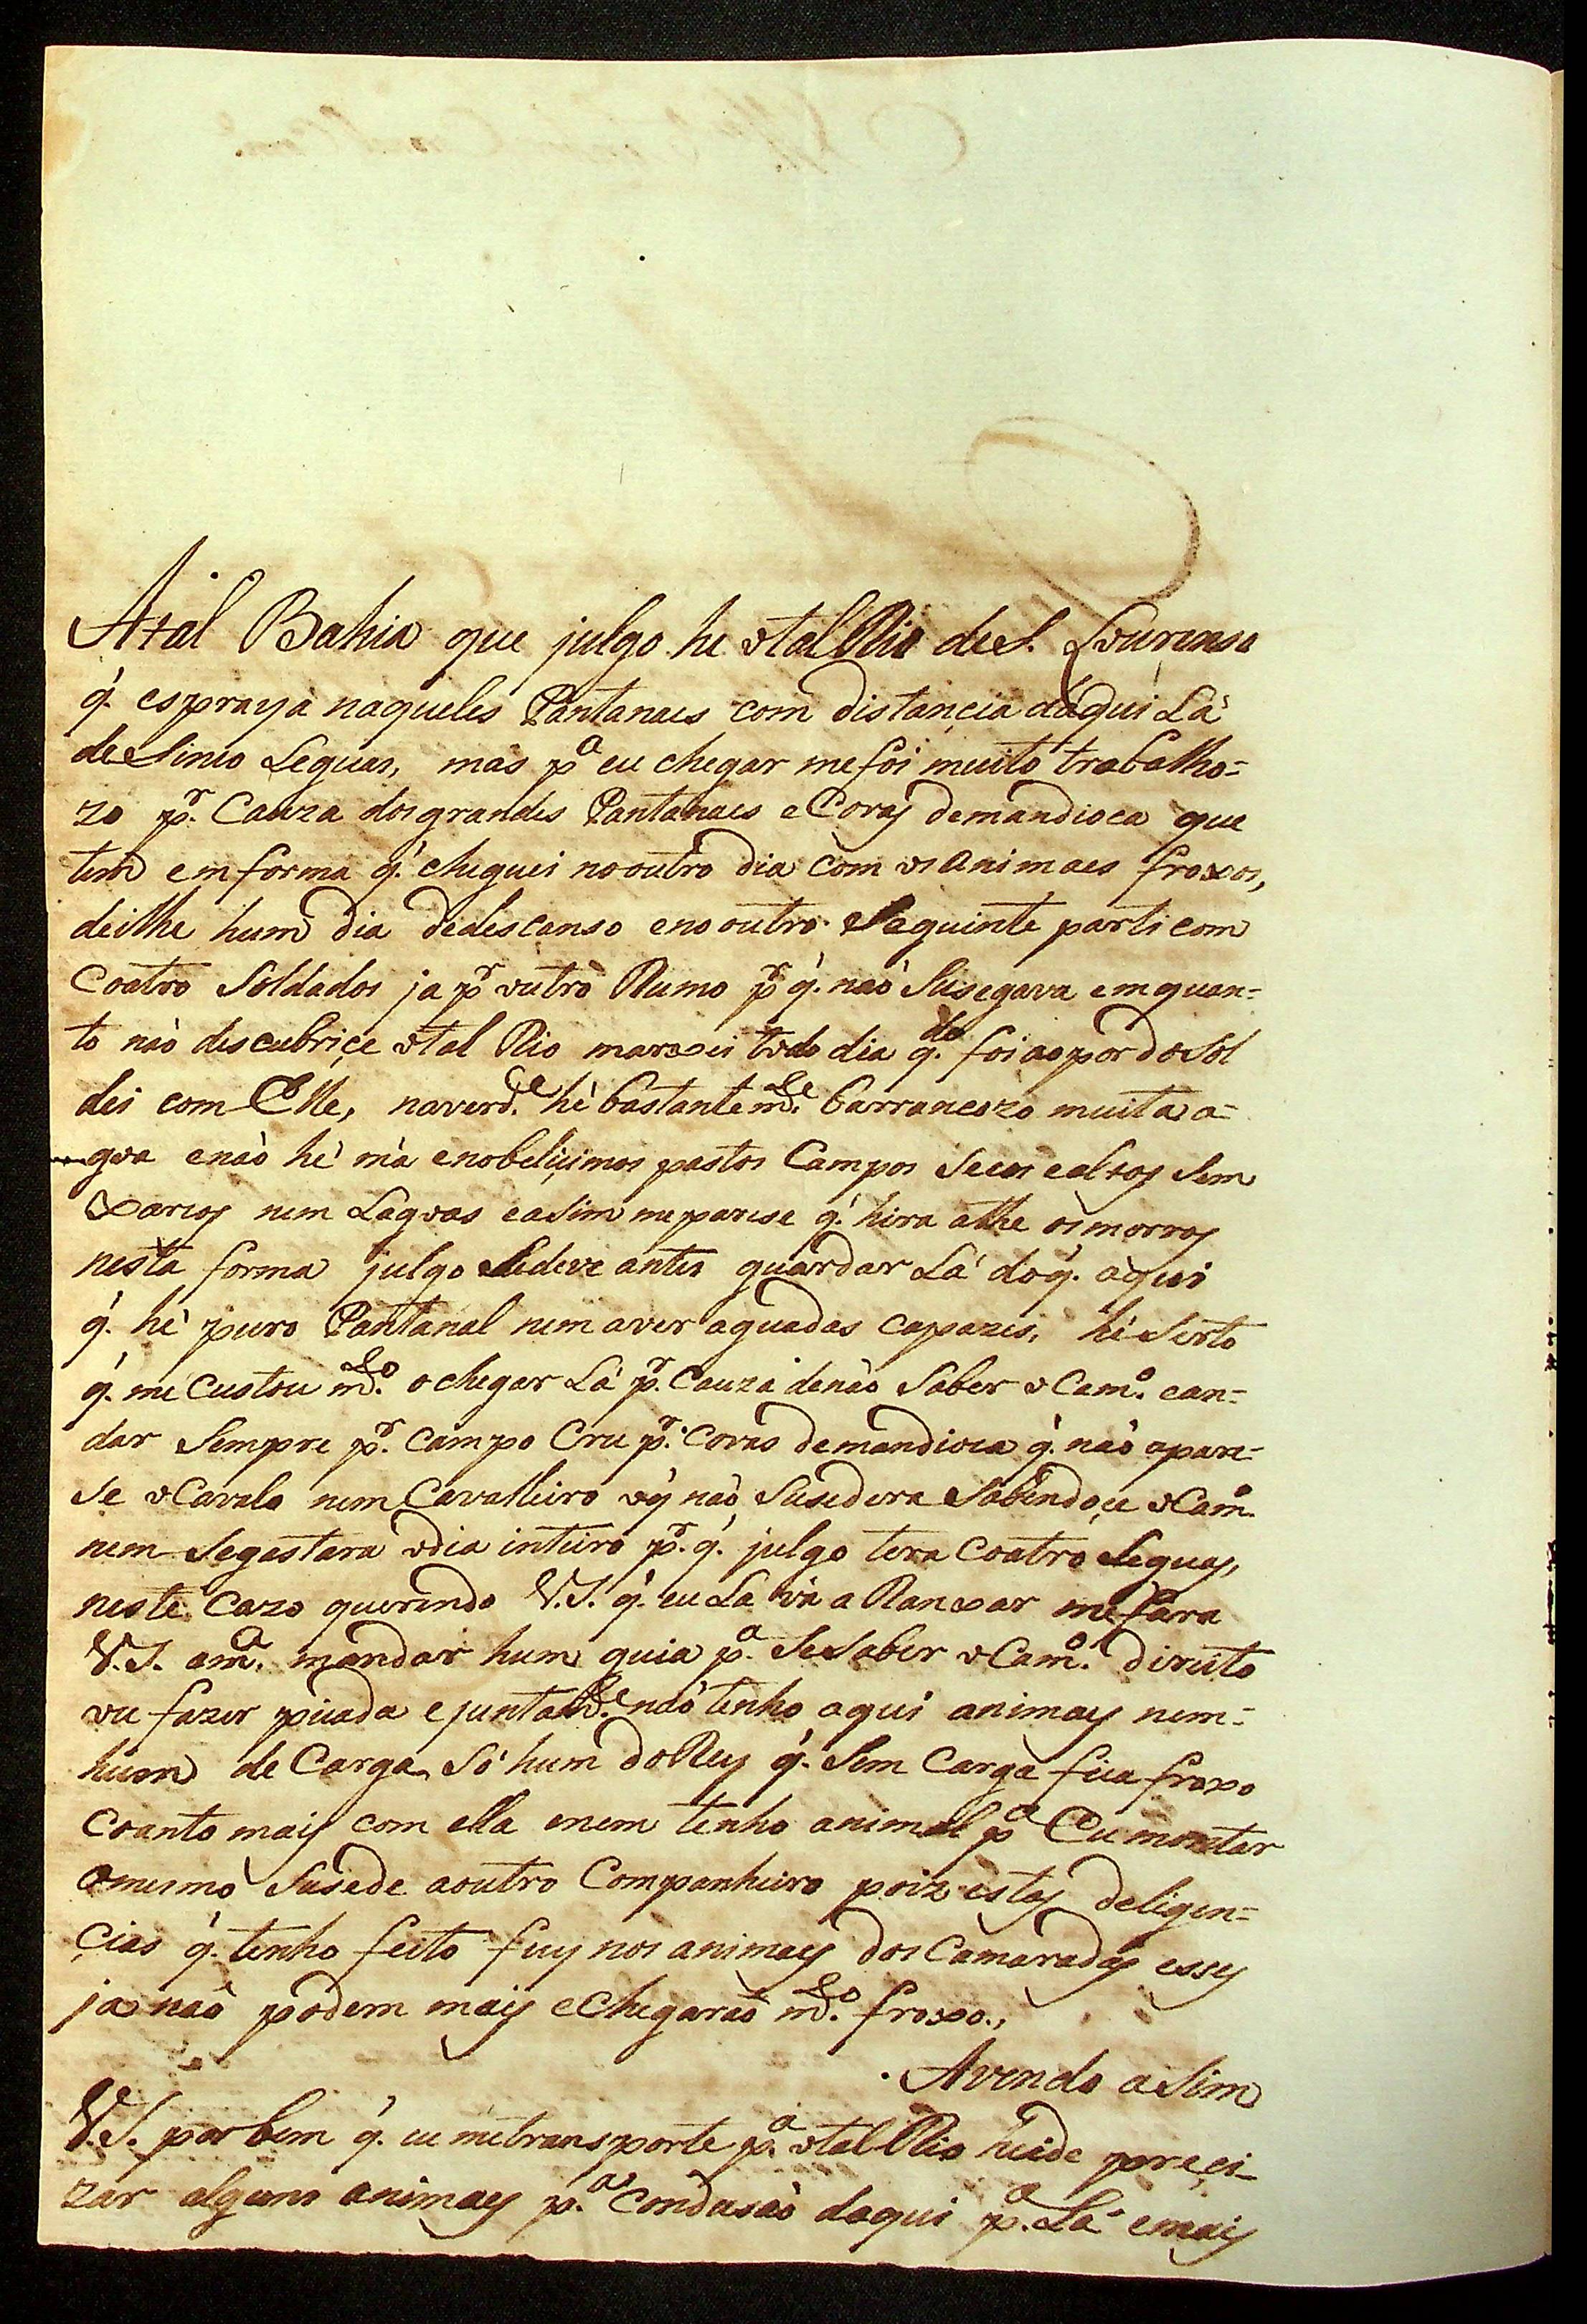 Atal Bahia que julgo he o tal Rio de S. Lourenso
q̃. esprayà naqueles Pantanaes com distancia daqui Lá
de Sinco Leguas, mas p.ª eu chegar me foi muito trabalho=
zo p.r Cauza dos grandes Pantanaes e Covas demandioca que
tem em forma q̃. cheguei no outro dia com os animaes froxos,
deilhe hum dia dedescanso eno outro Seguinte parti com
Coatro Soldados ja p.r outro Rumo p.r q̃. não Susegava emquan=
to não descubriçe o tal Rio marxei todo dia q.do foi ao por do Sol
dei com Elle, naverd.e hè bastantem.te barrancozo muita a=
goa enão hé má enobeliçimos pastos Campos Secos ealtos Sem
xarcos nem Lagoas easim me parese q̃. hira athe os morros
nesta forma julgo Sedeve antes guardar Lá doq̃. àqui
q̃. hè puro Pantanal nem aver aguadas capazes, hé Serto
q̃. me Custou m.to o chegar Lá p.r Cauza de não Saber o Cam.o ean=
dar Sempre p.r campo Cru p.r Covas demandioca q̃. não apare=
Se o Cavalo nem Cavalleiro oq̃ não Susedera Sabendoçe o Cam.o
nem Segastara o dia inteiro p.r q̃. julgo tera Coatro Leguas,
neste Cazo querendo V.S. q̃. eu La vá a Ranxar me fara
V.S. a m.ce mandar hum guia p.ª SeSaber o Cam.o direito
ou fazer picada e juntam.te não tenho aqui animays nem=
hum de Carga Só hum do Rey q̃. Sem Carga fica froxo
Coanto mais com ella enem tenho animal p.ª Eu montar
omesmo Susede aoutro Companheiro poiz estas deligen=
çias q̃. tenho feito fuy nos animays dos Camaradas esses
ja não podem mais eChegarão m.to froxo.,
Avendo aSim
V.S. por bem q̃. eu metransporte p.ª o tal Rio heide preçi=
zar alguns animays p.ª Condusão daqui p.ª Lá emais